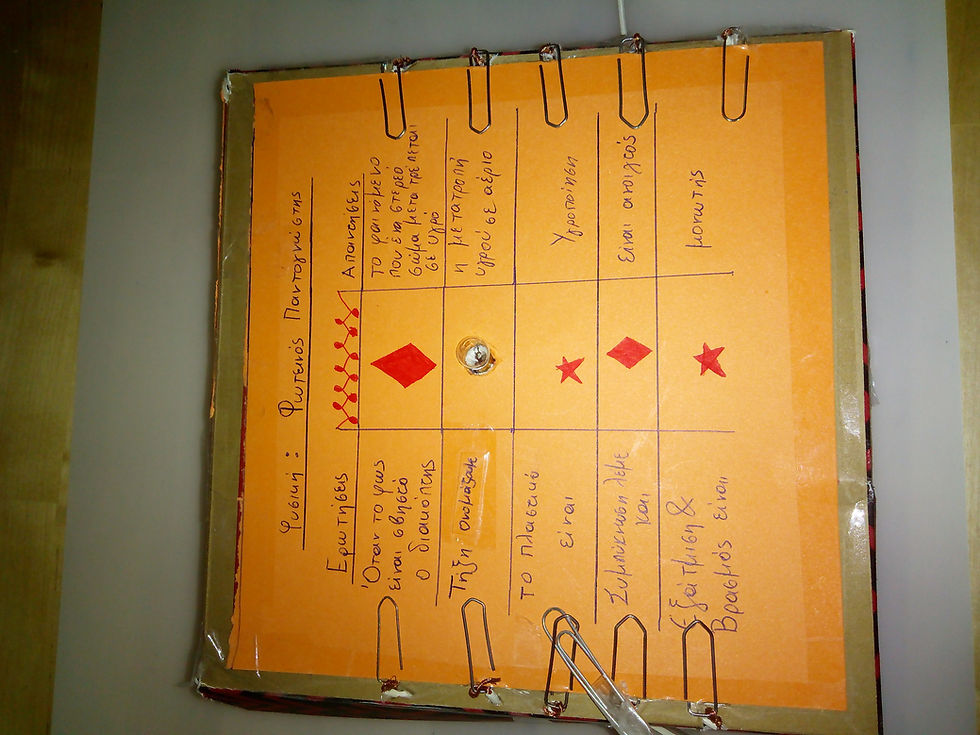 Φυσική : Φωτεινός Παντογνώστης
Ερωτήσεις
Απαντήσεις
Όταν το φως
είναι σβηστό
ο διακόπτης
το φαινόμενο
που ένα στερεό
σώμα μετατρέπεται
σε υγρό
Τήξη ονομάζουμε
η μετατροπή
υγρού σε αέριο
το πλαστικό
είναι
Υγροποίηση
Συμπύκνωση λέμε
και
είναι ανοιχτός
Εξάτμιση &
Βρασμός είναι
μονωτής